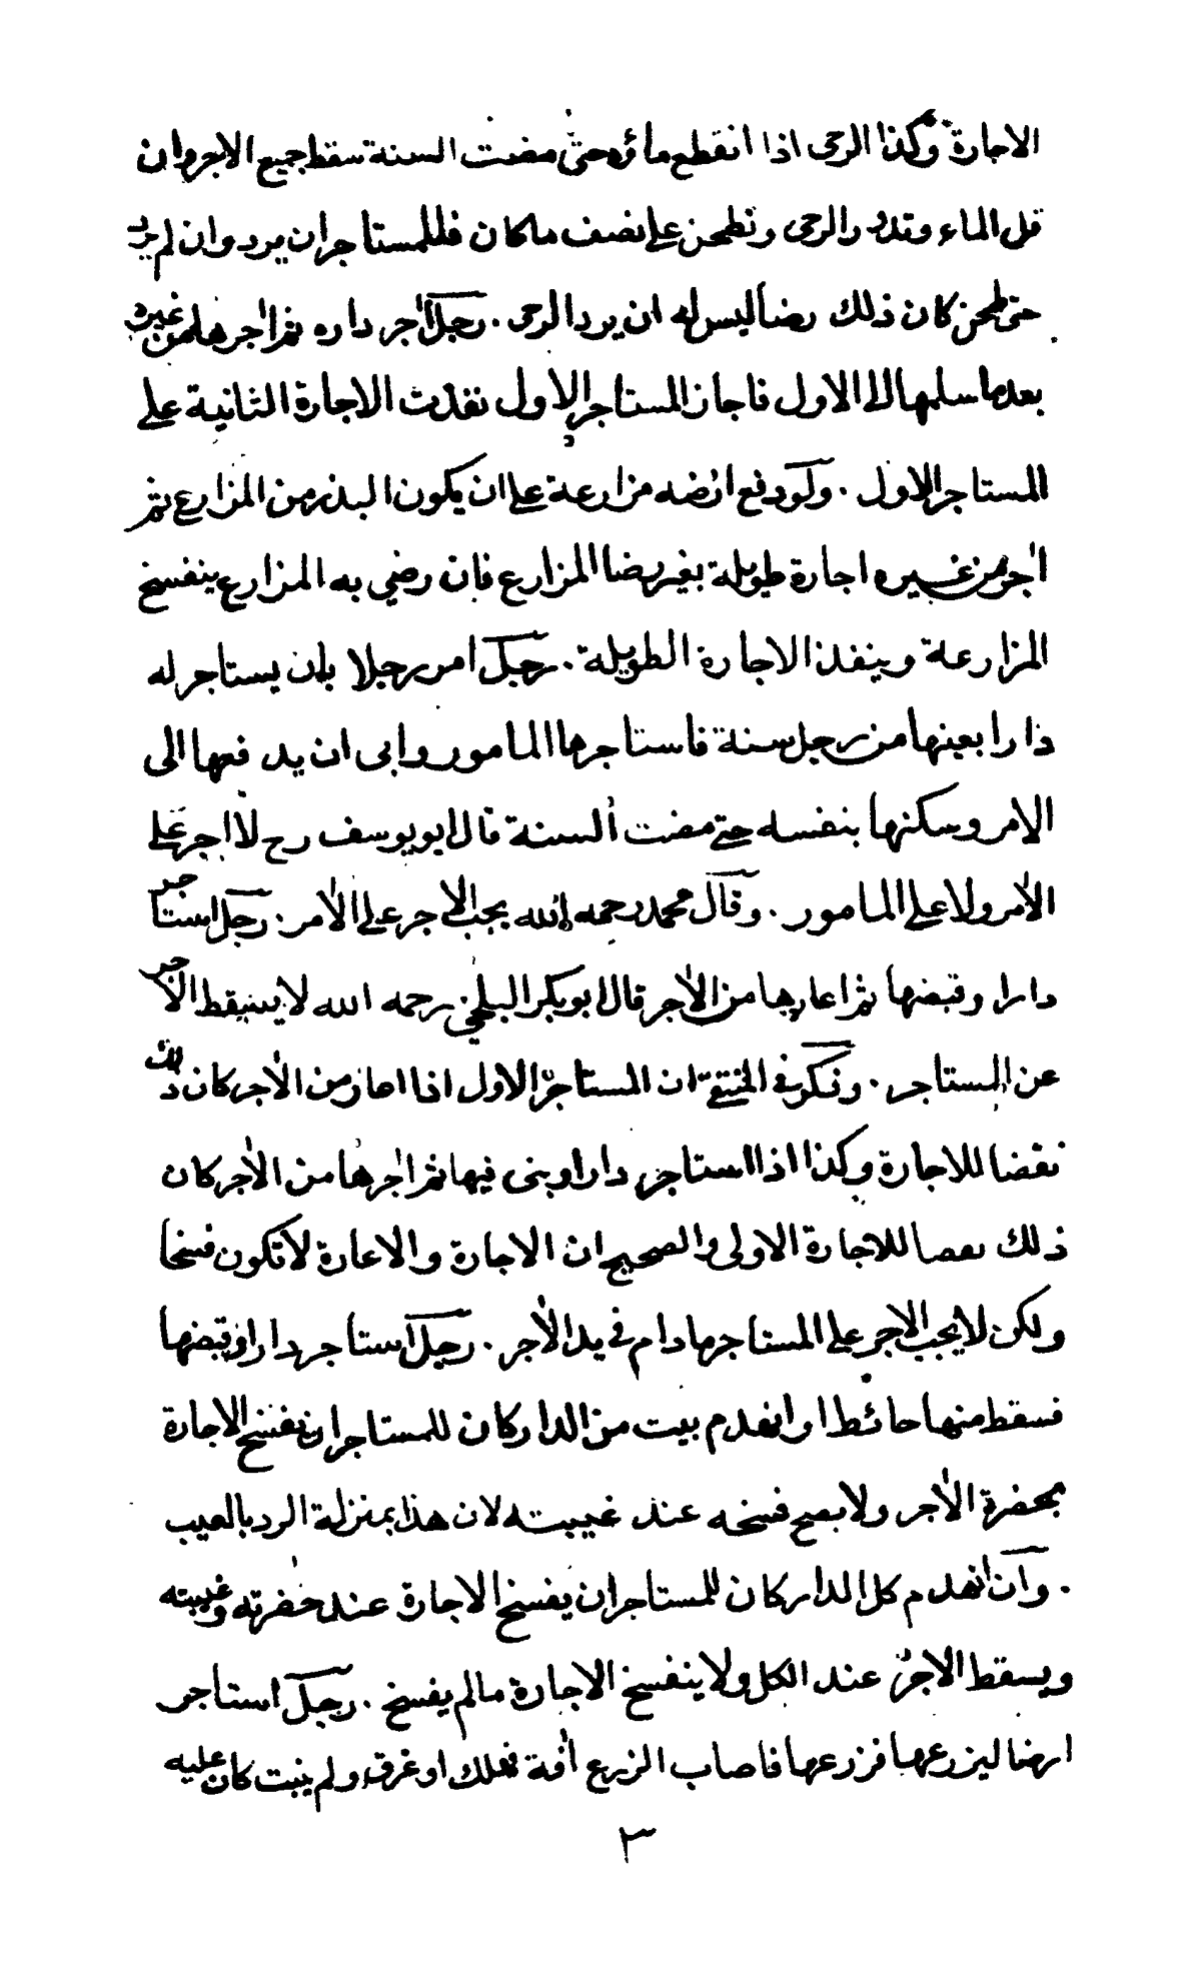 الاجارة وكذا الرحى اذا انقطع ماؤه حتى مضت السنة سقط جميع الاجر وان
قل الماء وتدور الرحى وتطحن على نصف ما كان فللمستاجر ان يرد وان لم يرد
حتى طحن كان ذلك رضا ليس له ان يرد الرحى . رجل آجر داره ثم آجرها من غيره
بعدما سلمها الى الاول فاجاز المستاجر الاول نفذت الاجارة الثانية على
المستاجر الاول . ولو دفع ارضه مزارعة على ان يكون البذر من المزارع ثم
آجر من غيره اجارة طويلة بغير رضا المزارع فان رضي به المزارع ينفسخ
المزارعة وينفذ الاجارة الطويلة . رجل امر رجلا بان يستاجر له
دارا بعينها من رجل سنة فاستاجرها المامور وابى ان يدفعها الى
الآمر وسكنها بنفسه حتى مضت السنة قال ابو يوسف رح لا اجر على
الآمر ولا على المامور . وقال محمد رحمه الله يجب الاجر على الآمر . رجل استاجر
دارا وقبضها ثم اعارها من الآجر قال ابو بكر البلخي رحمه الله لا يسقط الاجر
عن المستاجر . وذكر في المنتقى ان المستاجر الاول اذا اعار من الآجر كان ذلك
نقضا للاجارة وكذا اذا استاجر دارا وبنى فيها ثم آجرها من الآجر كان
ذلك نقضا للاجارة الاولى والصحيح ان الاجارة والاعارة لا تكون فسخا
ولكن لا يجب الاجر على المستاجر ما دام في يد الآجر . رجل استاجر دارا وقبضها
فسقط منها حائط او انهدم بيت من الدار كان للمستاجر ان يفسخ الاجارة
بحضرة الآجر ولا يصح فسخه عند غيبته لان هذا بمنزلة الرد بالعيب
. وان انهدم كل الدار كان للمستاجر ان يفسخ الاجارة عند حضرته وغيبته
ويسقط الاجر عند الكل ولا ينفسخ الاجارة ما لم يفسخ . رجل استاجر
ارضا ليزرعها فزرعها فاصاب الزرع آفة فهلك او غرق ولم ينبت كان عليه
٣